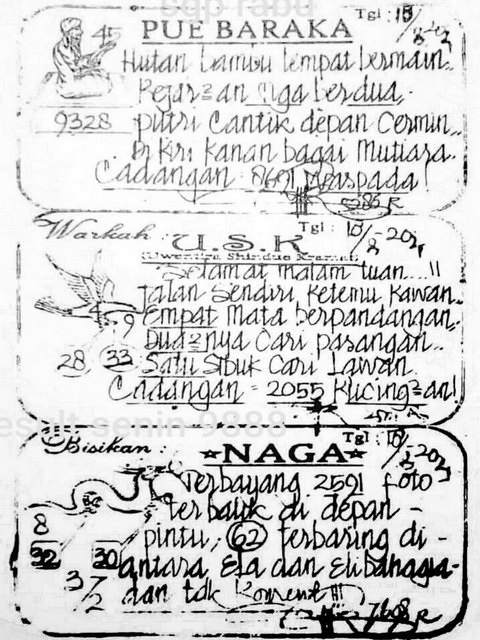 sgp rabu
Tgl : 18/8-202
45
PUE BARAKA
Hutan bambu tempat bermain..
Kejar2an tiga berdua,.
9328
putri Cantik depan Cermin..
Di Kiri Kanan bagai Mutiara.
Cadangan 8691 Waspada
Warkah :
Tgl : 18/8-202
U.S.K
"Selamat malam tuan...!!
Jalan Sendiri, Ketemu Kawan..
4 9
Empat Mata berpandangan,.
Dua2nya Cari pasangan..
28 33
Satu Sibuk Cari Lawan.
Cadangan = 2055 Kucing2an!
result senin 9888
Bisikan :
Tgl : 18/8-202
★NAGA★
Terbayang 2591 foto
terbalik di depan -
8
pintu, 62 Terbaring di -
32 30
antara Ela dan Eli bahagia
3 7/2
dan tdk Koment !!!
7608